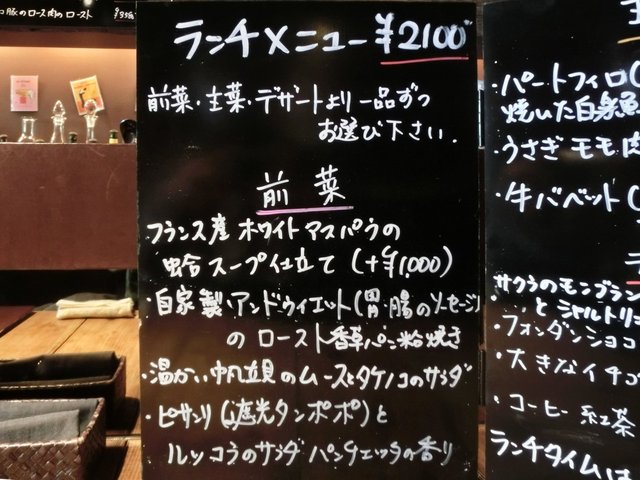 豚のロース肉のロースト
ランチメニュー ¥2100
前菜・主菜・デザートより一品ずつ
お選び下さい.
前菜
・フランス産 ホワイトアスパラの
蛤スープ仕立て (+¥1000)
・自家製・アンドゥイエット(胃・腸のソーセージ)
のロースト香草パン粉焼き
・温かい帆立貝のムースとタケノコのサラダ
・ピサンリ(遮光タンポポ)と
ルッコラのサラダ パンチェッタの香り
・パートフィロ(
焼いた白身魚
・うさぎモモ肉
・牛バベット(
サクラのモンブラン
と シャルトリ
・フォンダンショコ
・大きなイチゴ
・コーヒー 紅茶
ランチタイムは